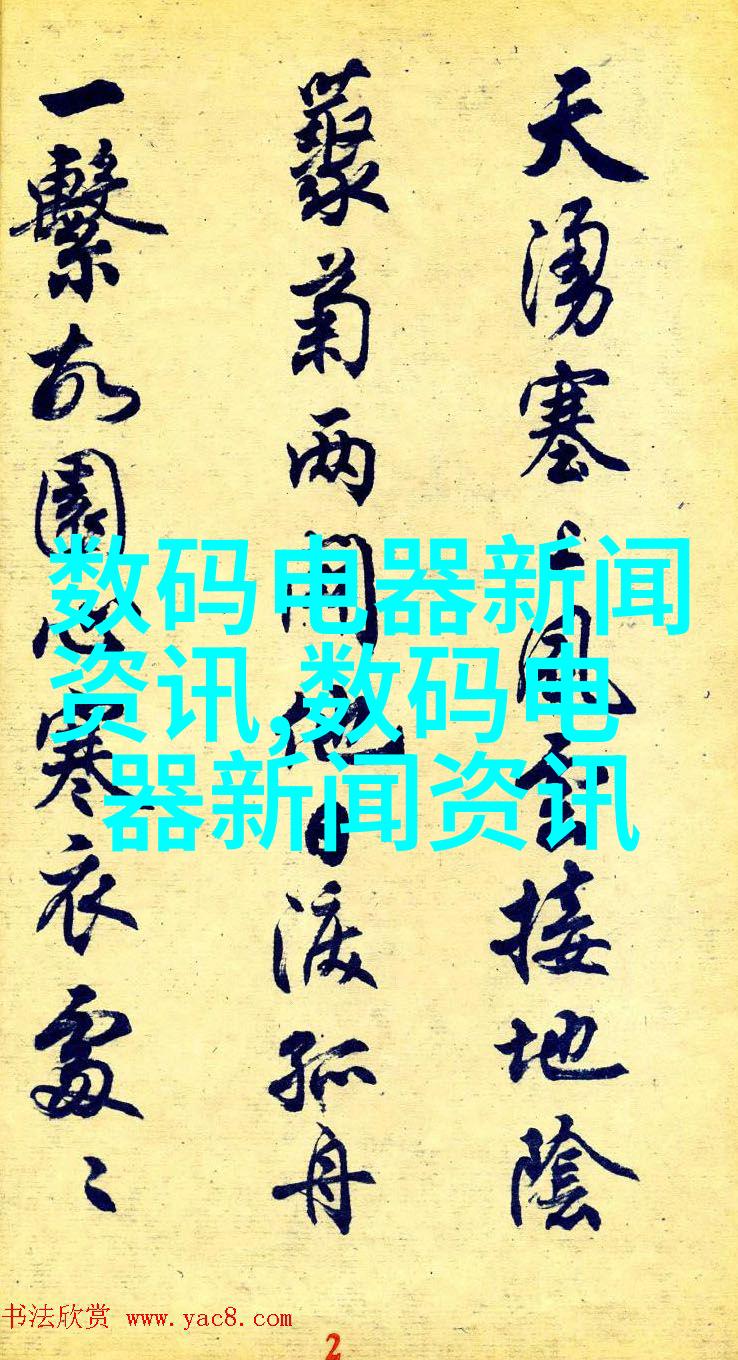 天湧塞上風雲接地陰
叢菊两開他日淚孤舟
一繫故園心寒衣處〻
数码电器新闻
资讯,数码电
器新闻资讯
书法欣赏 www.yac8.com
2